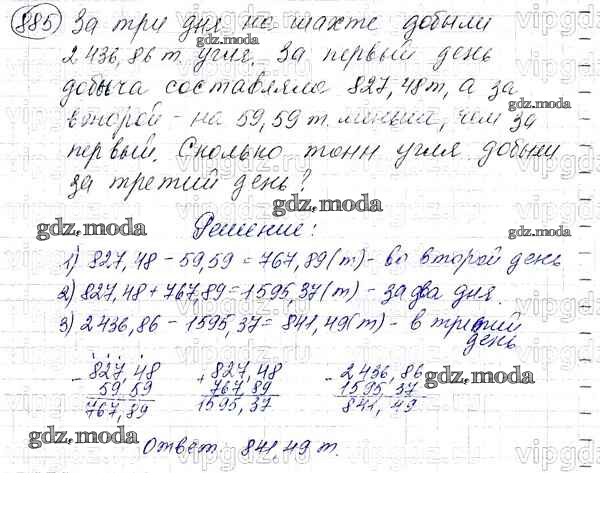 885) За три дня на шахте добыли
2 436,86 т. угля. За первый день
добыча составляла 827,48 т, а за
второй - на 59,59 т. меньше, чем за
первый. Сколько тонн угля добыли
за третий день?
Решение:
1) 827,48 - 59,59 = 767,89 (т) - во второй день
2) 827,48 + 767,89 = 1595,37 (т) - за два дня.
3) 2 436,86 - 1595,37 = 841,49 (т) - в третий
день
- 827,48 + 827,48 - 2 436,86
59,59 767,89 1595,37
767,89 1595,37 841,49
Ответ: 841,49 т.
gdz.moda
gdz.moda
gdz.moda
gdz.moda
gdz.moda
gdz.moda